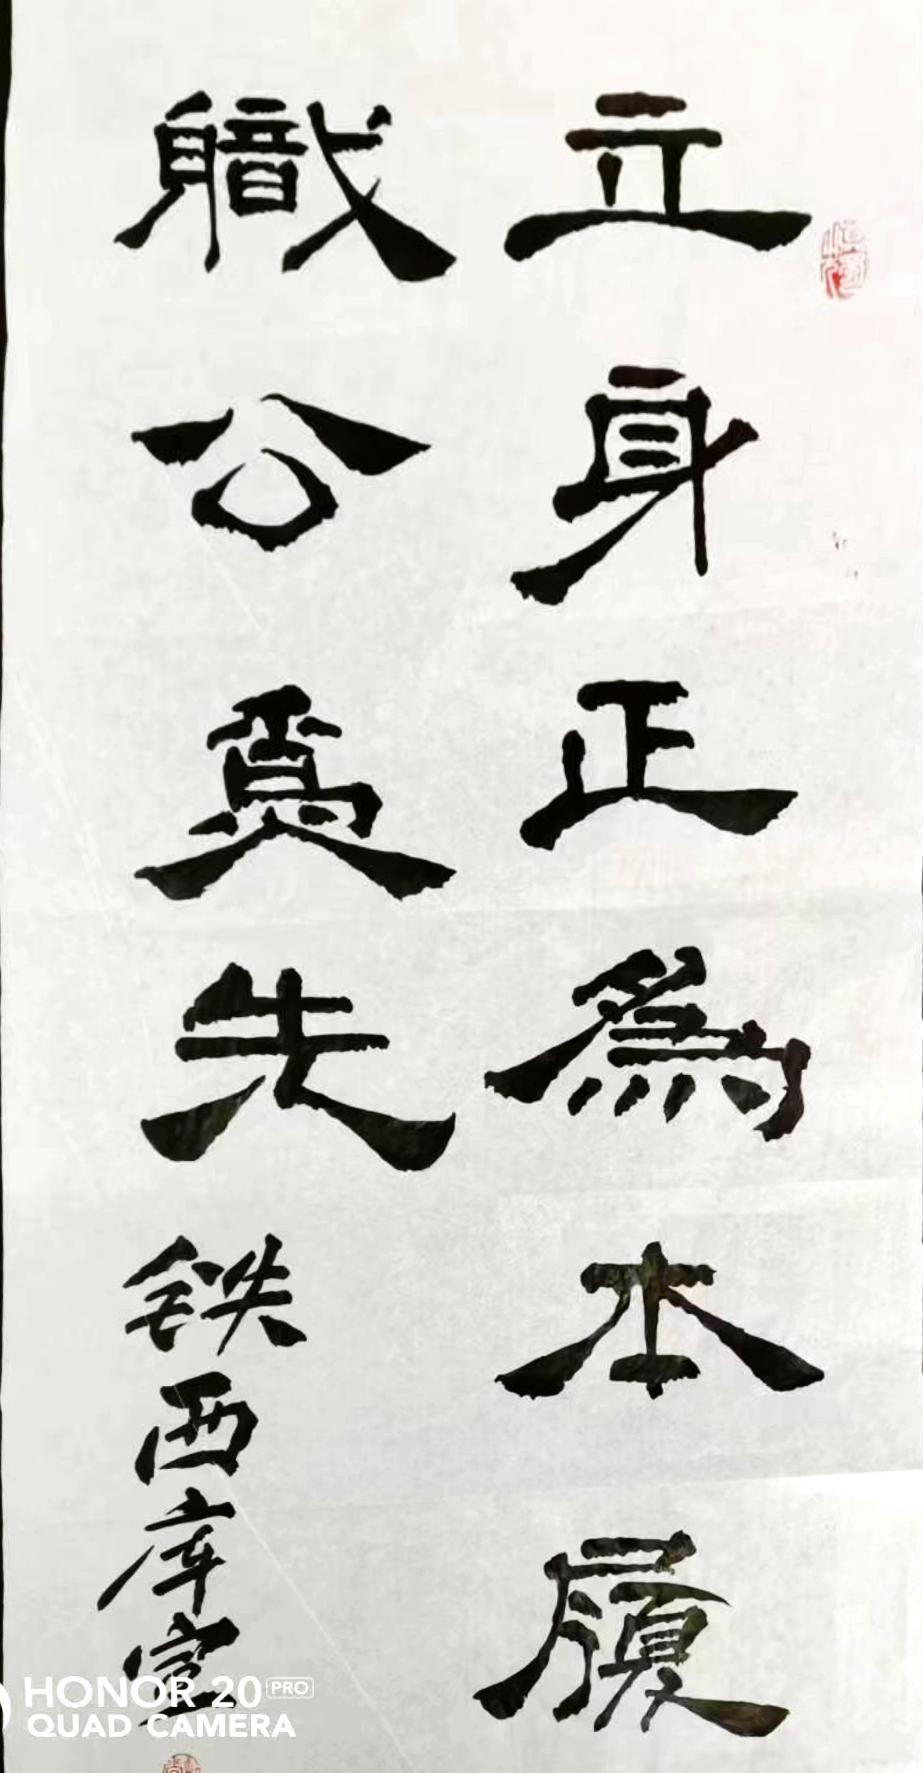 立身正為本履
軄公為先
铁西库宣
HONOR 20 PRO
QUAD CAMERA